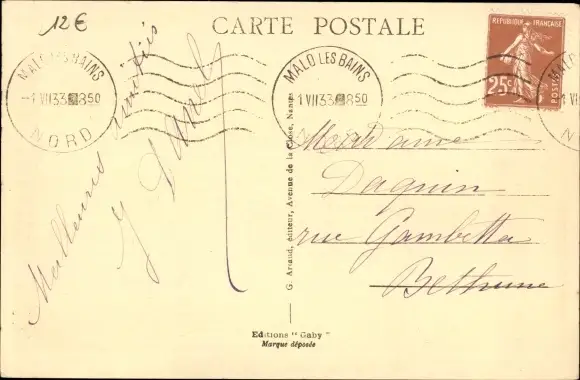 12€
CARTE POSTALE
REPUBLIQUE FRANÇAISE
25c
POSTES
MALO LES BAINS
-1 VII 33 8 50
NORD
MALO LES BAINS
-1 VII 33 8 50
NORD
MA
-1 V
N
Meilleures amitiés
Madame
Daquin
rue Gambetta
Bethune
G. Artaud, éditeur, Avenue de la Close, Nantes
Editions "Gaby"
Marque déposée